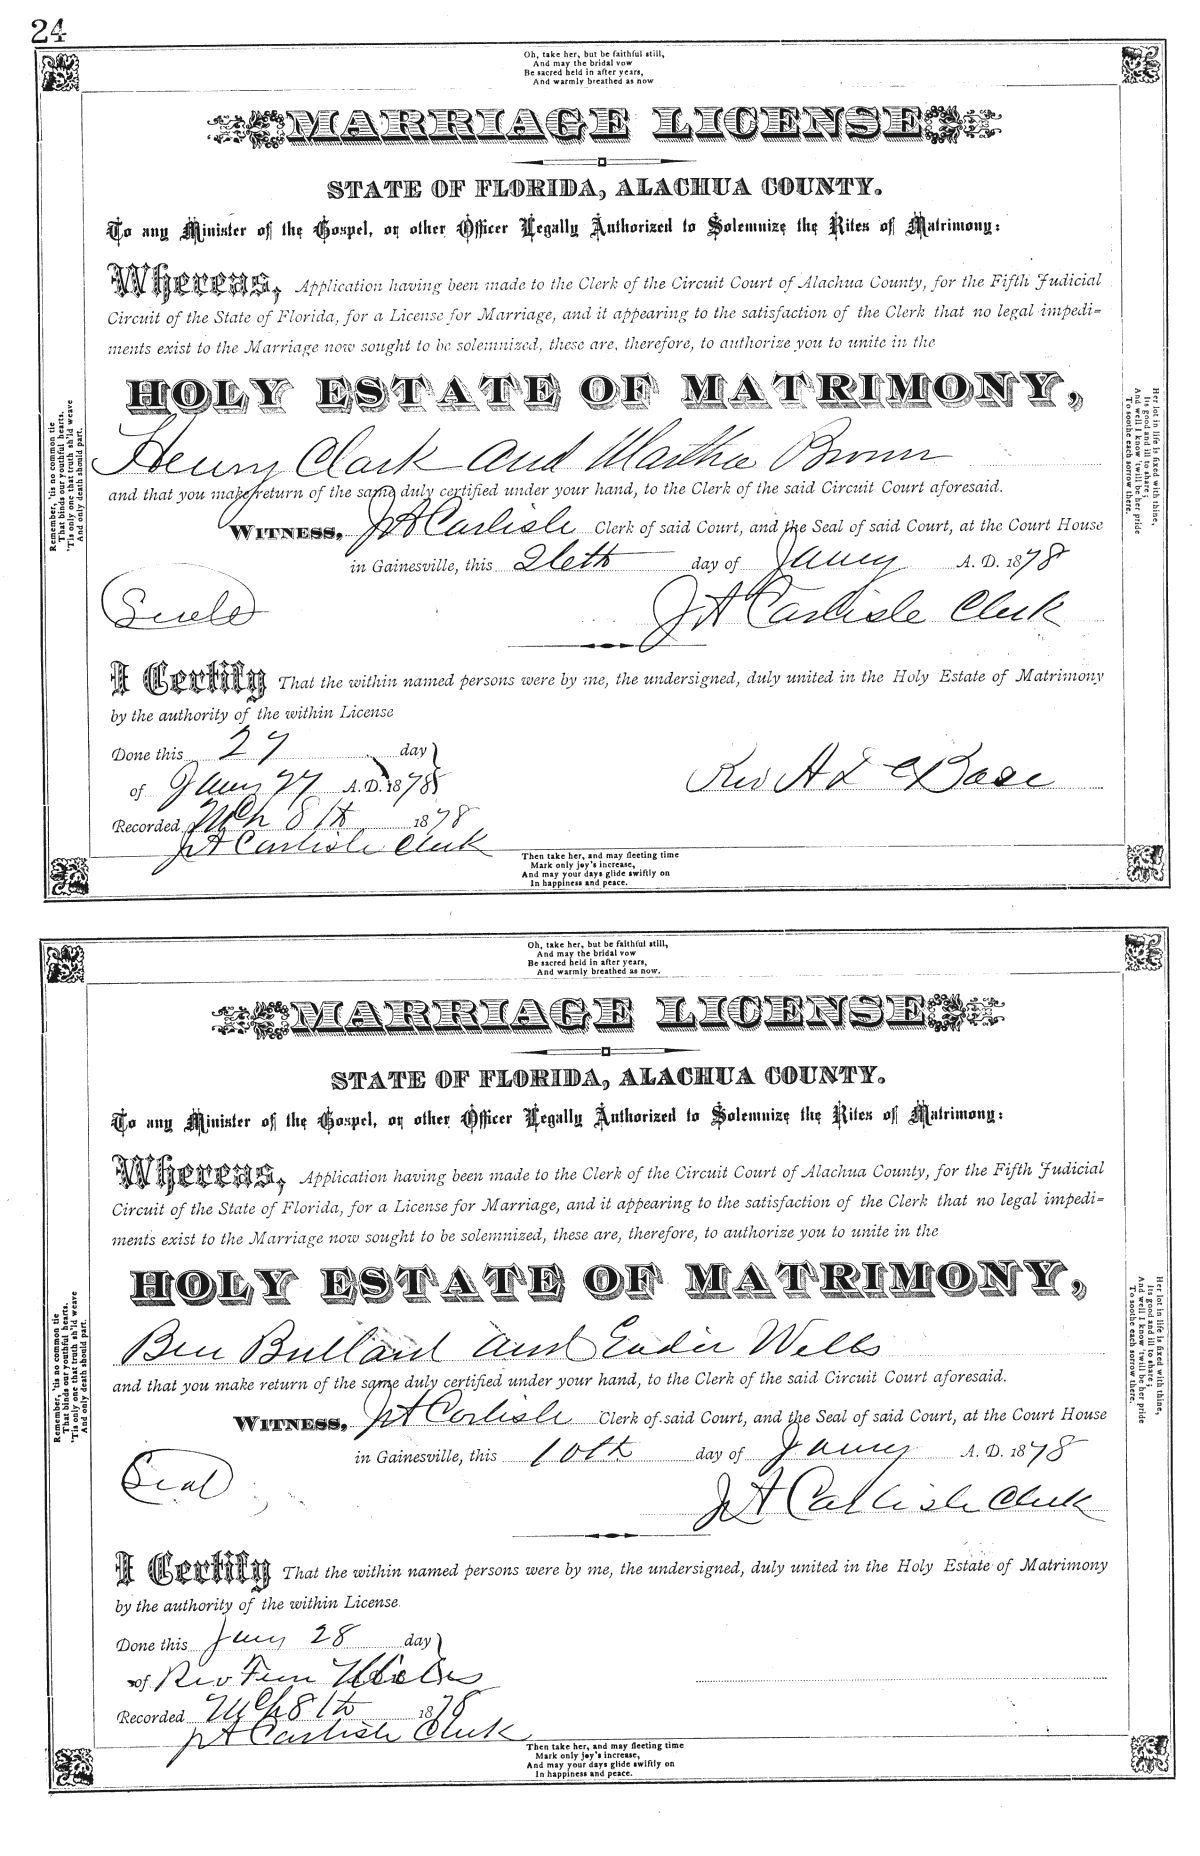 24
Oh, take her, but be faithful still,
And may the bridal vow
Be sacred held in after years,
And warmly breathed as now
MARRIAGE LICENSE
STATE OF FLORIDA, ALACHUA COUNTY.
To any Minister of the Gospel, or other Officer Legally Authorized to Solemnize the Rites of Matrimony:
Whereas, Application having been made to the Clerk of the Circuit Court of Alachua County, for the Fifth Judicial
Circuit of the State of Florida, for a License for Marriage, and it appearing to the satisfaction of the Clerk that no legal impedi=
ments exist to the Marriage now sought to be solemnized, these are, therefore, to authorize you to unite in the
HOLY ESTATE OF MATRIMONY,
Henry Clark and Martha Brown
and that you make return of the same duly certified under your hand, to the Clerk of the said Circuit Court aforesaid.
WITNESS, JA Carlisle Clerk of said Court, and the Seal of said Court, at the Court House
in Gainesville, this 26th day of Jany A. D. 1878
Seal
JA Carlisle Clerk
I Certify That the within named persons were by me, the undersigned, duly united in the Holy Estate of Matrimony
by the authority of the within License
Done this 27 day
of Jany 27 A.D. 1878
Rev A L
Recorded Mch 8th 1878
JA Carlisle Clerk
Remember, 'tis no common tie
That binds our youthful hearts,
'Tis only one that truth sh'ld weave
And only death should part.
Her lot in life is fixed with thine,
Its good and ill to share;
And well I know 'twill be her pride
To soothe each sorrow there.
Then take her, and may fleeting time
Mark only joy's increase,
And may your days glide swiftly on
In happiness and peace.
Oh, take her, but be faithful still,
And may the bridal vow
Be sacred held in after years,
And warmly breathed as now.
MARRIAGE LICENSE
STATE OF FLORIDA, ALACHUA COUNTY.
To any Minister of the Gospel, or other Officer Legally Authorized to Solemnize the Rites of Matrimony:
Whereas, Application having been made to the Clerk of the Circuit Court of Alachua County, for the Fifth Judicial
Circuit of the State of Florida, for a License for Marriage, and it appearing to the satisfaction of the Clerk that no legal impedi=
ments exist to the Marriage now sought to be solemnized, these are, therefore, to authorize you to unite in the
HOLY ESTATE OF MATRIMONY,
Ben Bullard and Wells
and that you make return of the same duly certified under your hand, to the Clerk of the said Circuit Court aforesaid.
WITNESS, JA Carlisle Clerk of said Court, and the Seal of said Court, at the Court House
in Gainesville, this 10th day of Jany A. D. 1878
Seal
JA Carlisle Clerk
I Certify That the within named persons were by me, the undersigned, duly united in the Holy Estate of Matrimony
by the authority of the within License
Done this Jany 28 day
of Rev
Recorded Mch 8th 1878
JA Carlisle Clerk
Remember, 'tis no common tie
That binds our youthful hearts.
'Tis only one that truth sh'ld weave
And only death should part.
Her lot in life is fixed with thine,
Its good and ill to share;
And well I know 'twill be her pride
To soothe each sorrow there.
Then take her, and may fleeting time
Mark only joy's increase,
And may your days glide swiftly on
In happiness and peace.